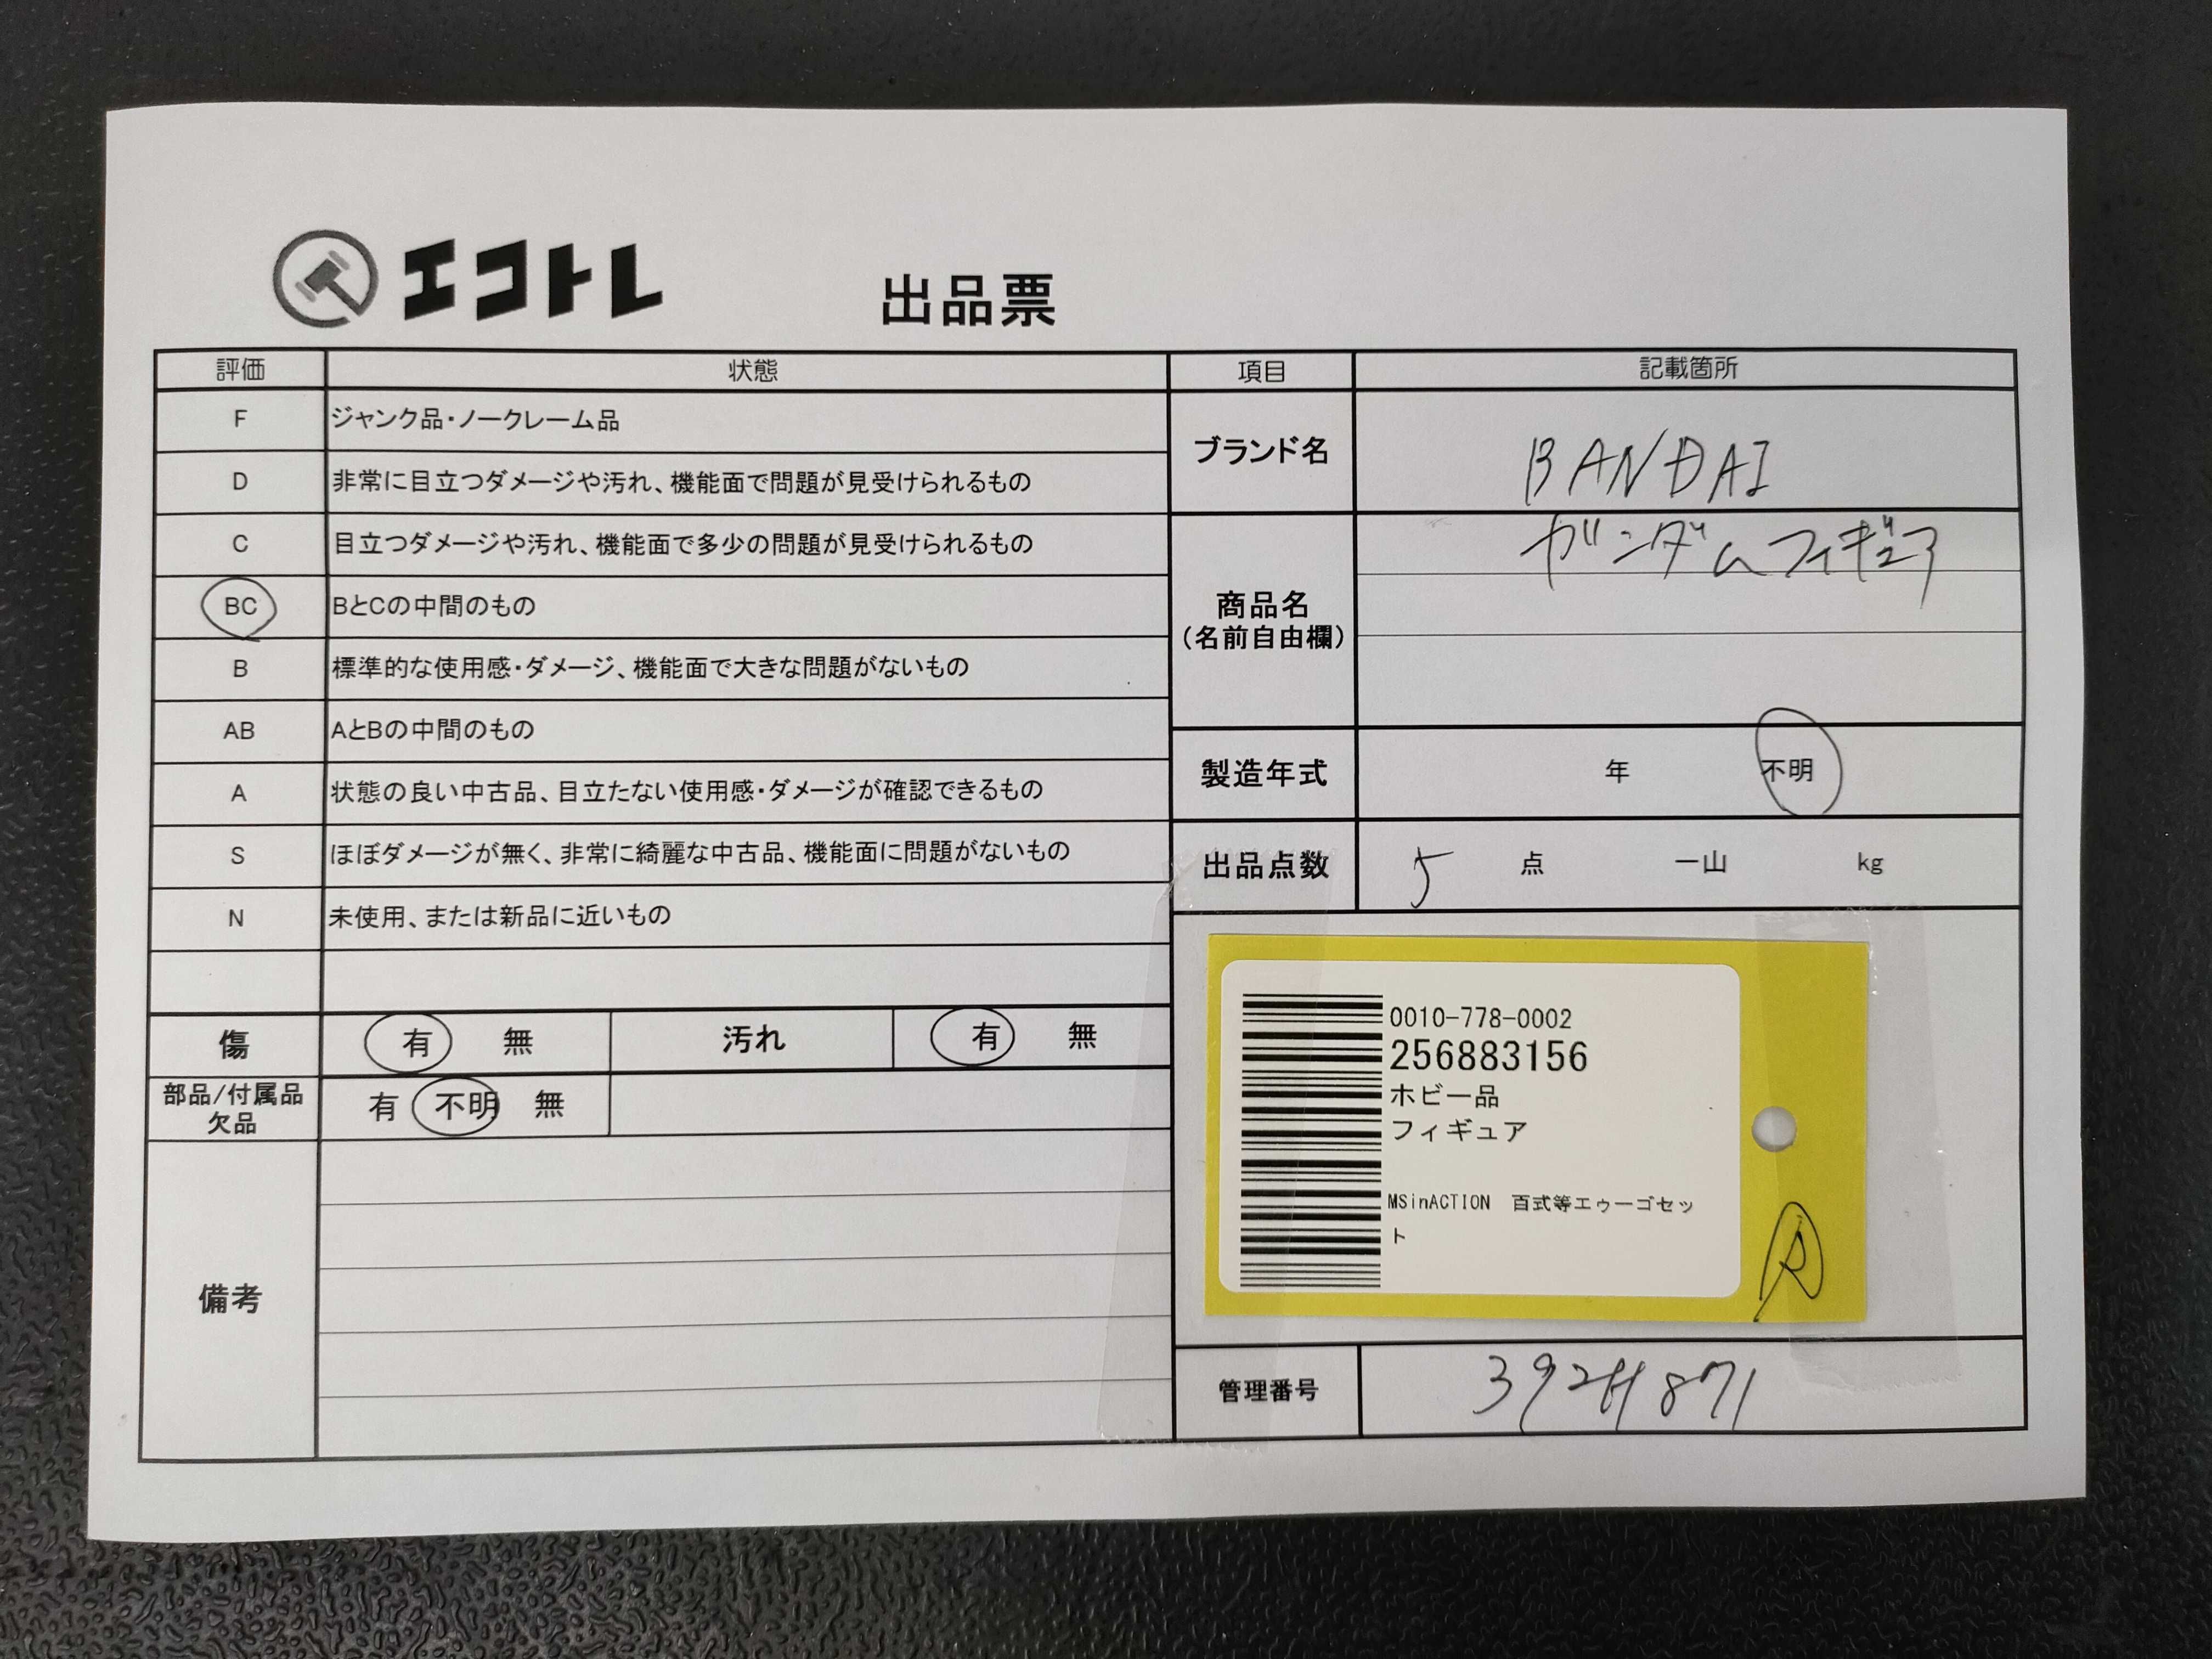 エコトレ
出品票
評価 状態 項目 記載箇所
F ジャンク品・ノークレーム品
D 非常に目立つダメージや汚れ、機能面で問題が見受けられるもの
C 目立つダメージや汚れ、機能面で多少の問題が見受けられるもの
BC BとCの中間のもの
B 標準的な使用感・ダメージ、機能面で大きな問題がないもの
AB AとBの中間のもの
A 状態の良い中古品、目立たない使用感・ダメージが確認できるもの
S ほぼダメージが無く、非常に綺麗な中古品、機能面に問題がないもの
N 未使用、または新品に近いもの
傷 有 無 汚れ 有 無
部品/付属品
欠品
有 不明 無
備考
ブランド名 BANDAI
商品名
(名前自由欄)
ガンダムフィギュア
製造年式 年 不明
出品点数 5 点 一山 kg
0010-778-0002
256883156
ホビー品
フィギュア
MSinACTION 百式等エゥーゴセッ
ト
管理番号